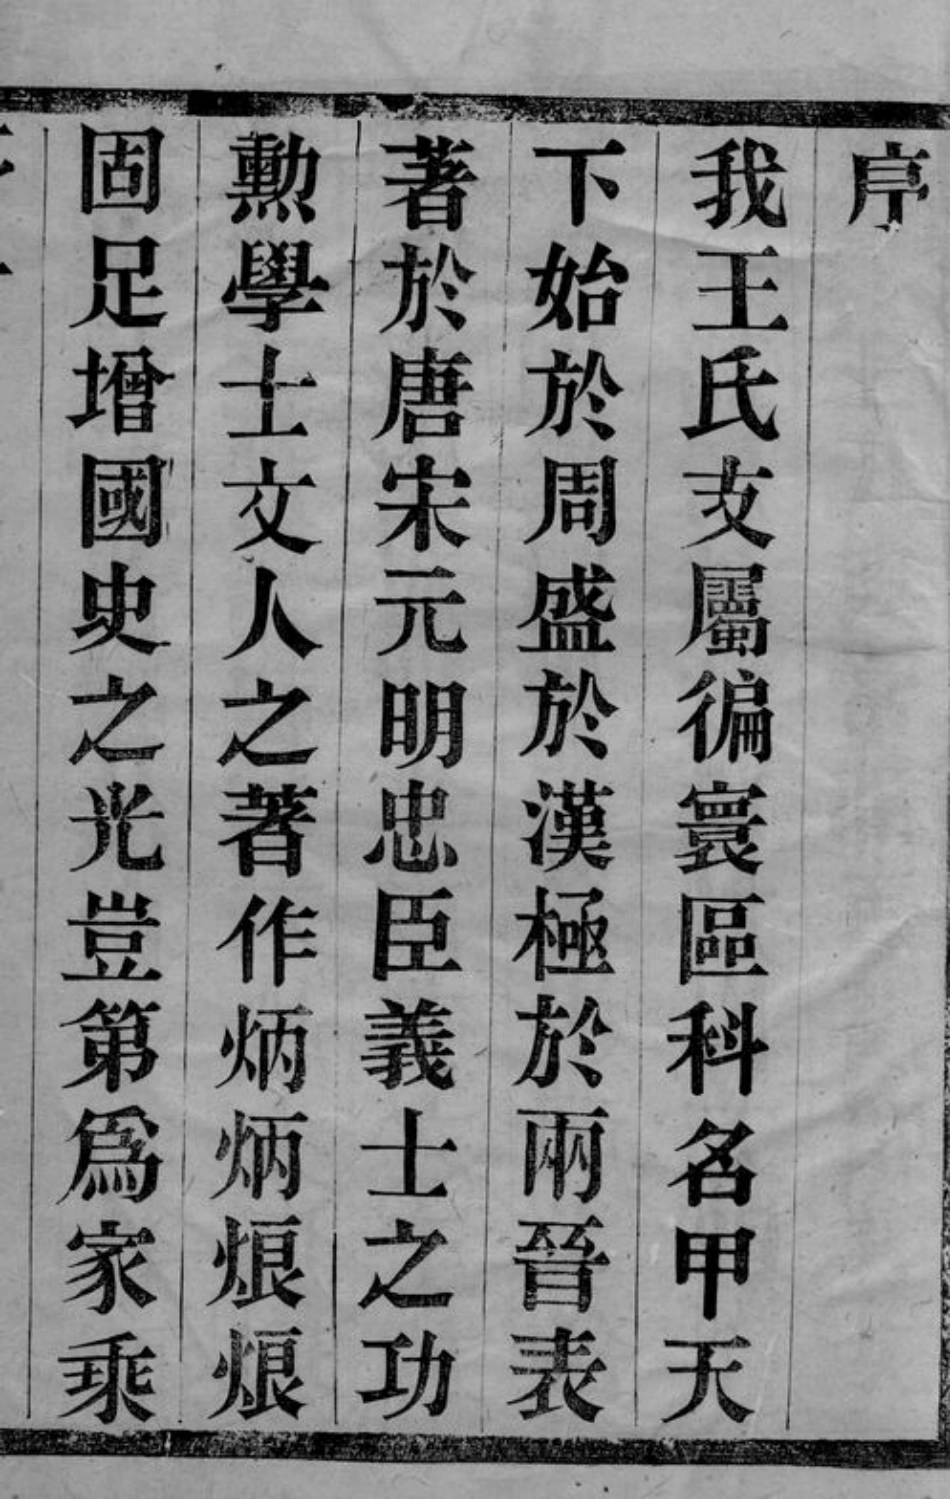 序
我王氏支屬徧寰區科名甲天
下始於周盛於漢極於兩晉表
著於唐宋元明忠臣義士之功
勲學士文人之著作炳炳烺烺
固足增國史之光豈第爲家乘